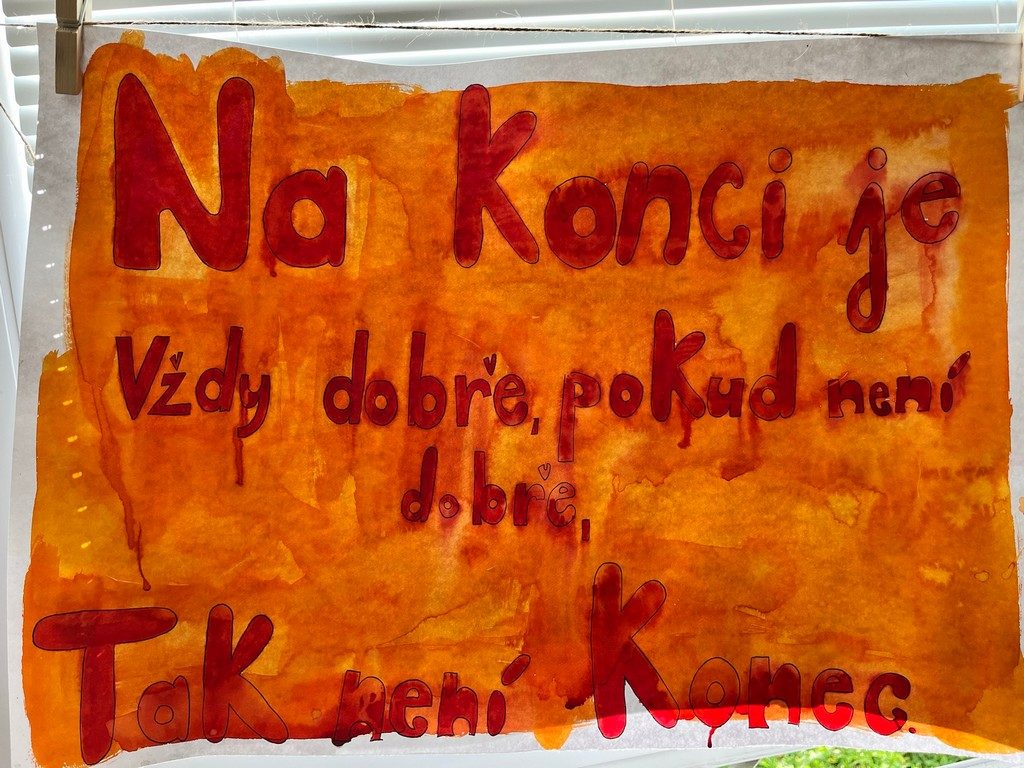 Na Konci je
Vždy dobře, poKud není
dobře,
TaK není Konec.